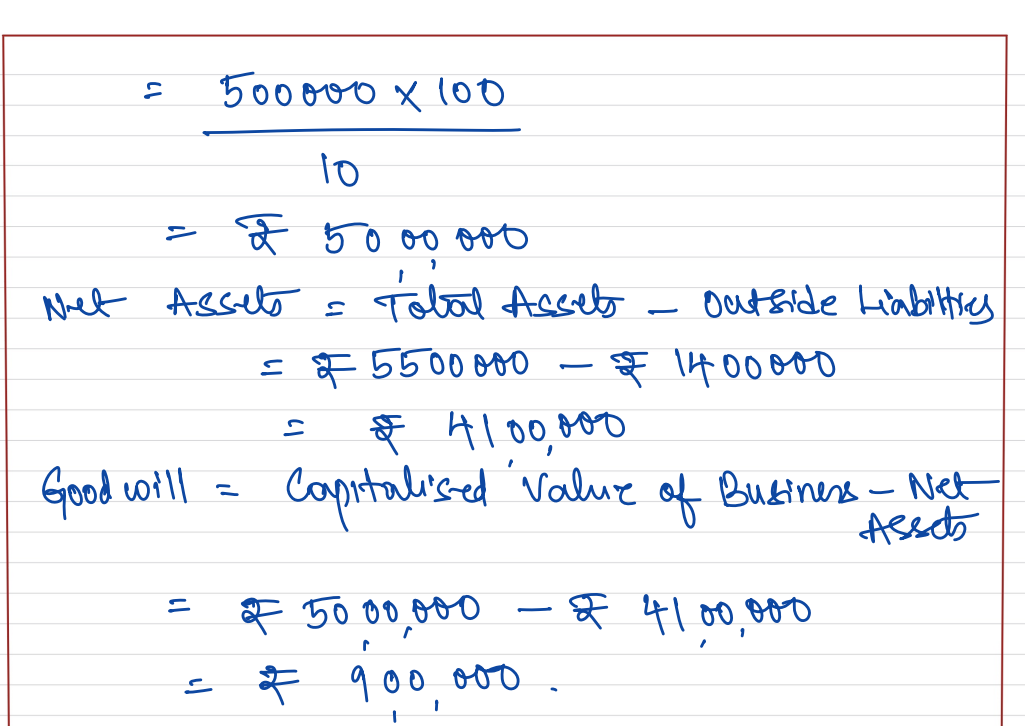 = 500000 × 100
10
= ₹ 50,00,000
Net Assets = Total Assets - Outside Liabilities
= ₹ 5500000 - ₹ 1400000
= ₹ 41,00,000
Goodwill = Capitalised Value of Business - Net
Assets
= ₹ 50,00,000 - ₹ 41,00,000
= ₹ 9,00,000.